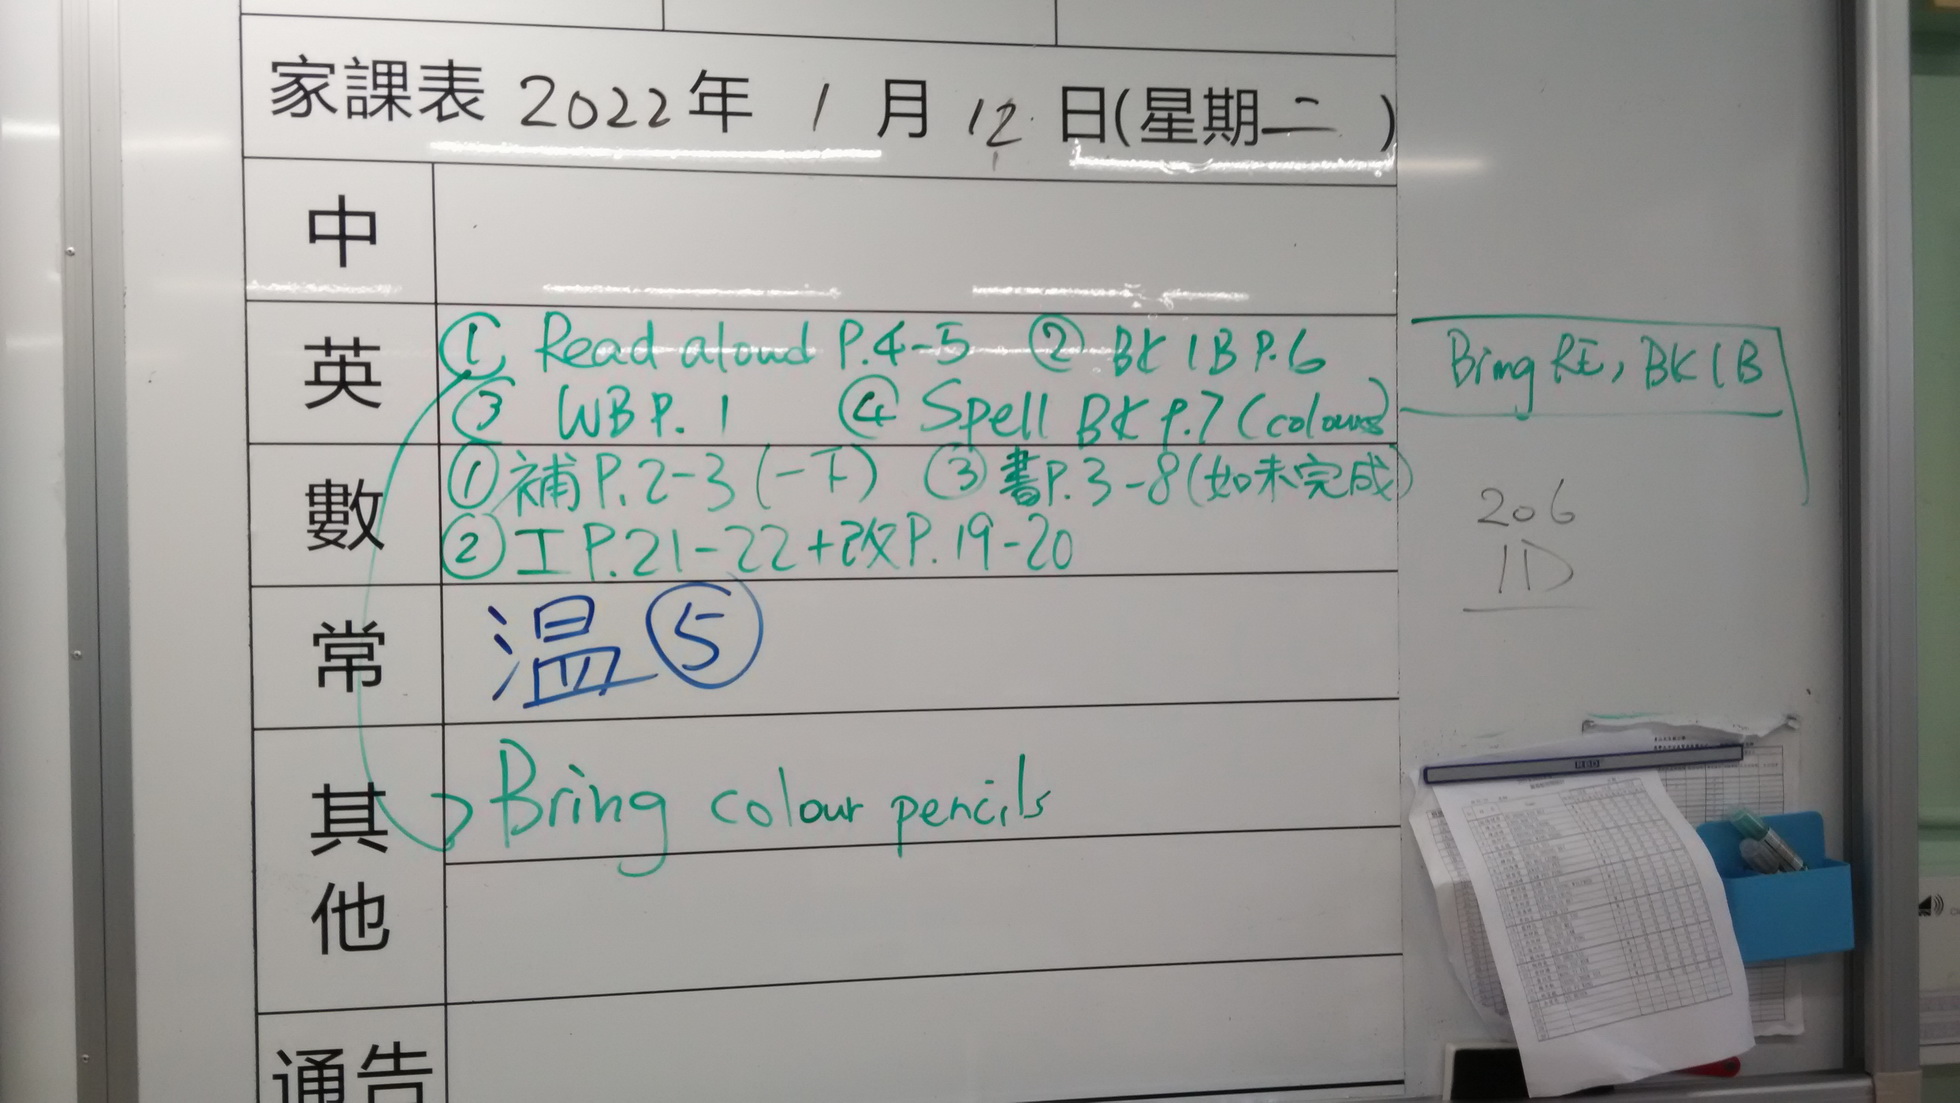 家課表 2022年 1月 12日(星期二)
中
英
① Read aloud P.4-5 ② BK 1B P.6
③ WB P. 1 ④ Spell BK P.7 (colours)
Bring RE, BK 1B
數
① 補 P.2-3 (一下) ③ 書P.3-8(如未完成)
② 工 P.21-22+改P.19-20
206
1D
常
温⑤
其他
Bring colour pencils
通告